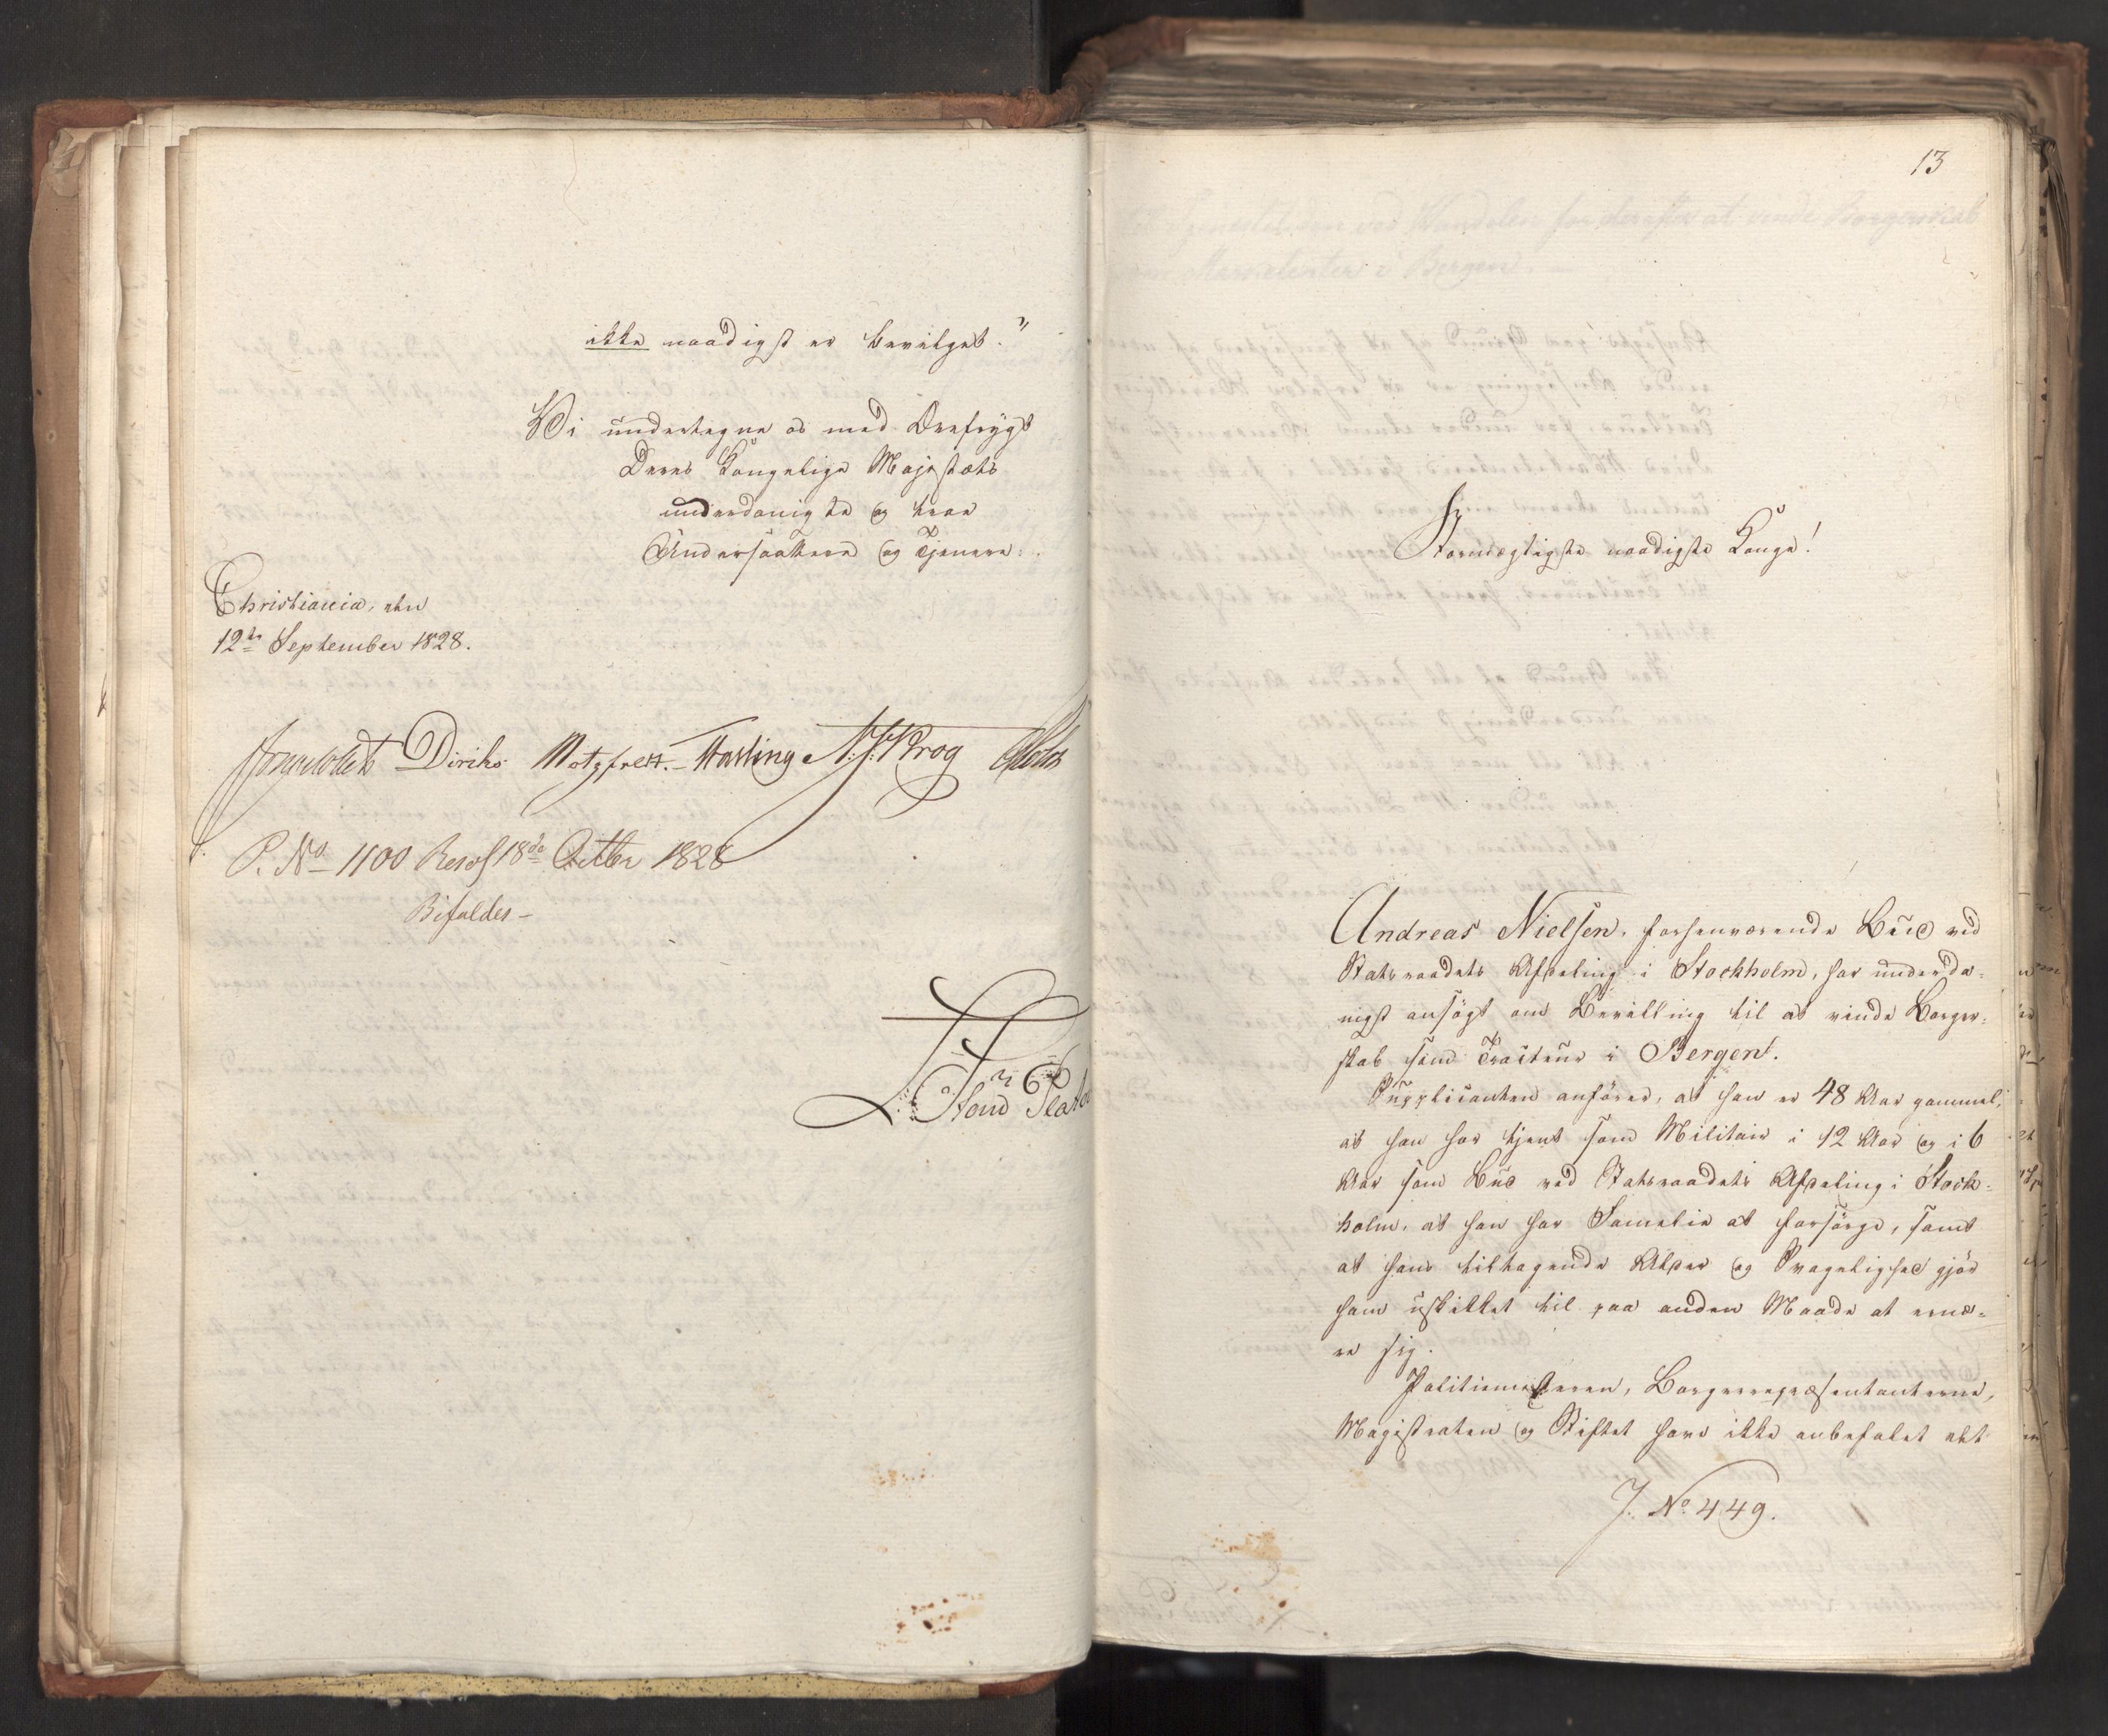 ikke naadigst er bevilget."
Vi undertegne os med Ærefrygt
Deres Kongelige Majestæts
underdanigste og troe
Undersaatter og Tjenere.
Christiania, den
12te September 1828.
Diriks Motzfeldt. Hasling N:J: Krog
P. No 1100 Resol 18de Octbr 1828
Bifaldes-
13
Stormægtigste naadigste Konge!
Andreas Nielsen, forhenværende Bud ved
Statsraadets Afdeling i Stockholm, har underda-
nigst ansøgt om Bevilling til at vinde Borger-
skab som Traiteur i Bergen.
Supplicanten anfører, at han er 48 Aar gammel,
at han har tjent som Militair i 12 Aar og i 6
Aar som Bud ved Statsraadets Afdeling i Stock-
holm, at han har Familie at forsørge, samt
at hans tiltagende Alder og Svagelighed gjør
ham uskikket til paa anden Maade at ernæ-
re sig.
Politiemesteren, Borgerrepræsentanterne,
Magistraten og Stiftet have ikke anbefalet det
J. No 449.